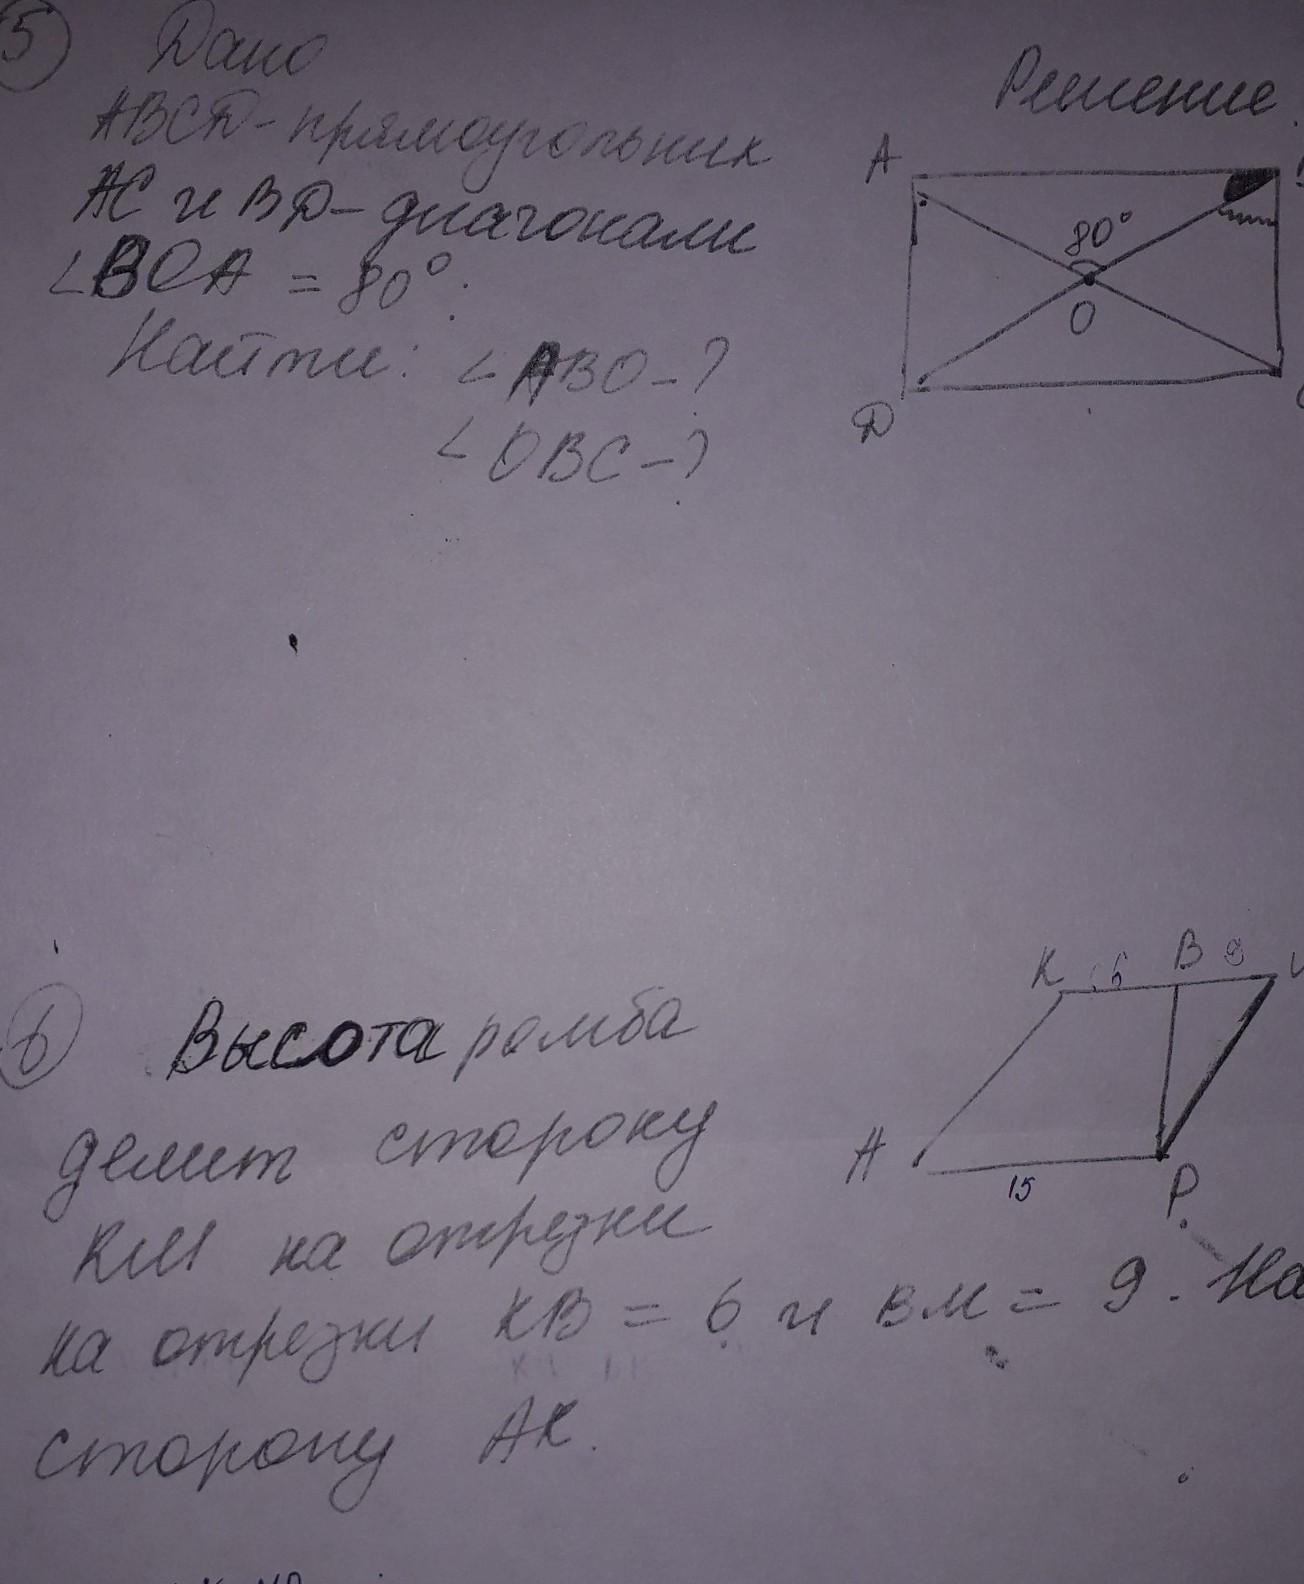 5 Дано
Решение
ABCD-прямоугольник
AC и BD-диагонали
∠BOA = 80°.
Найти: ∠ABO-?
∠OBC-?
A
80°
O
D
6
K 6 B 9
Высота ромба
делит сторону
A
15
P.
KM на отрезки
на отрезки KB = 6 и BM = 9.
сторону AK.